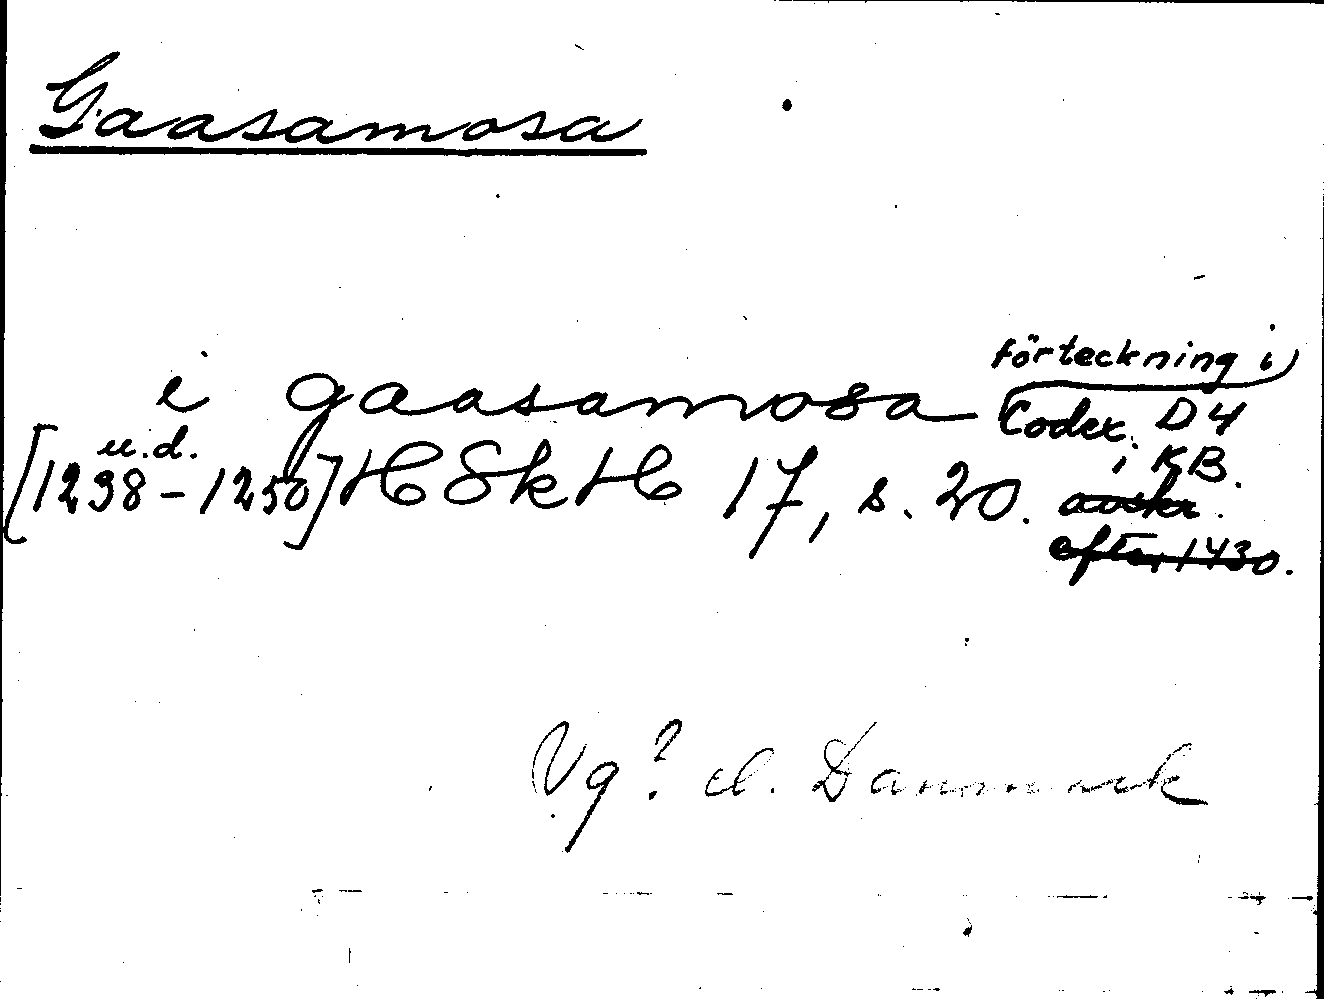 Gaasamosa
förteckning i
i gaasamosa Codex D4
u.d. i KB.
[1238-1250] HSkH 17, s. 20. avskr.
efter 1430.
Vg? el. Danmark